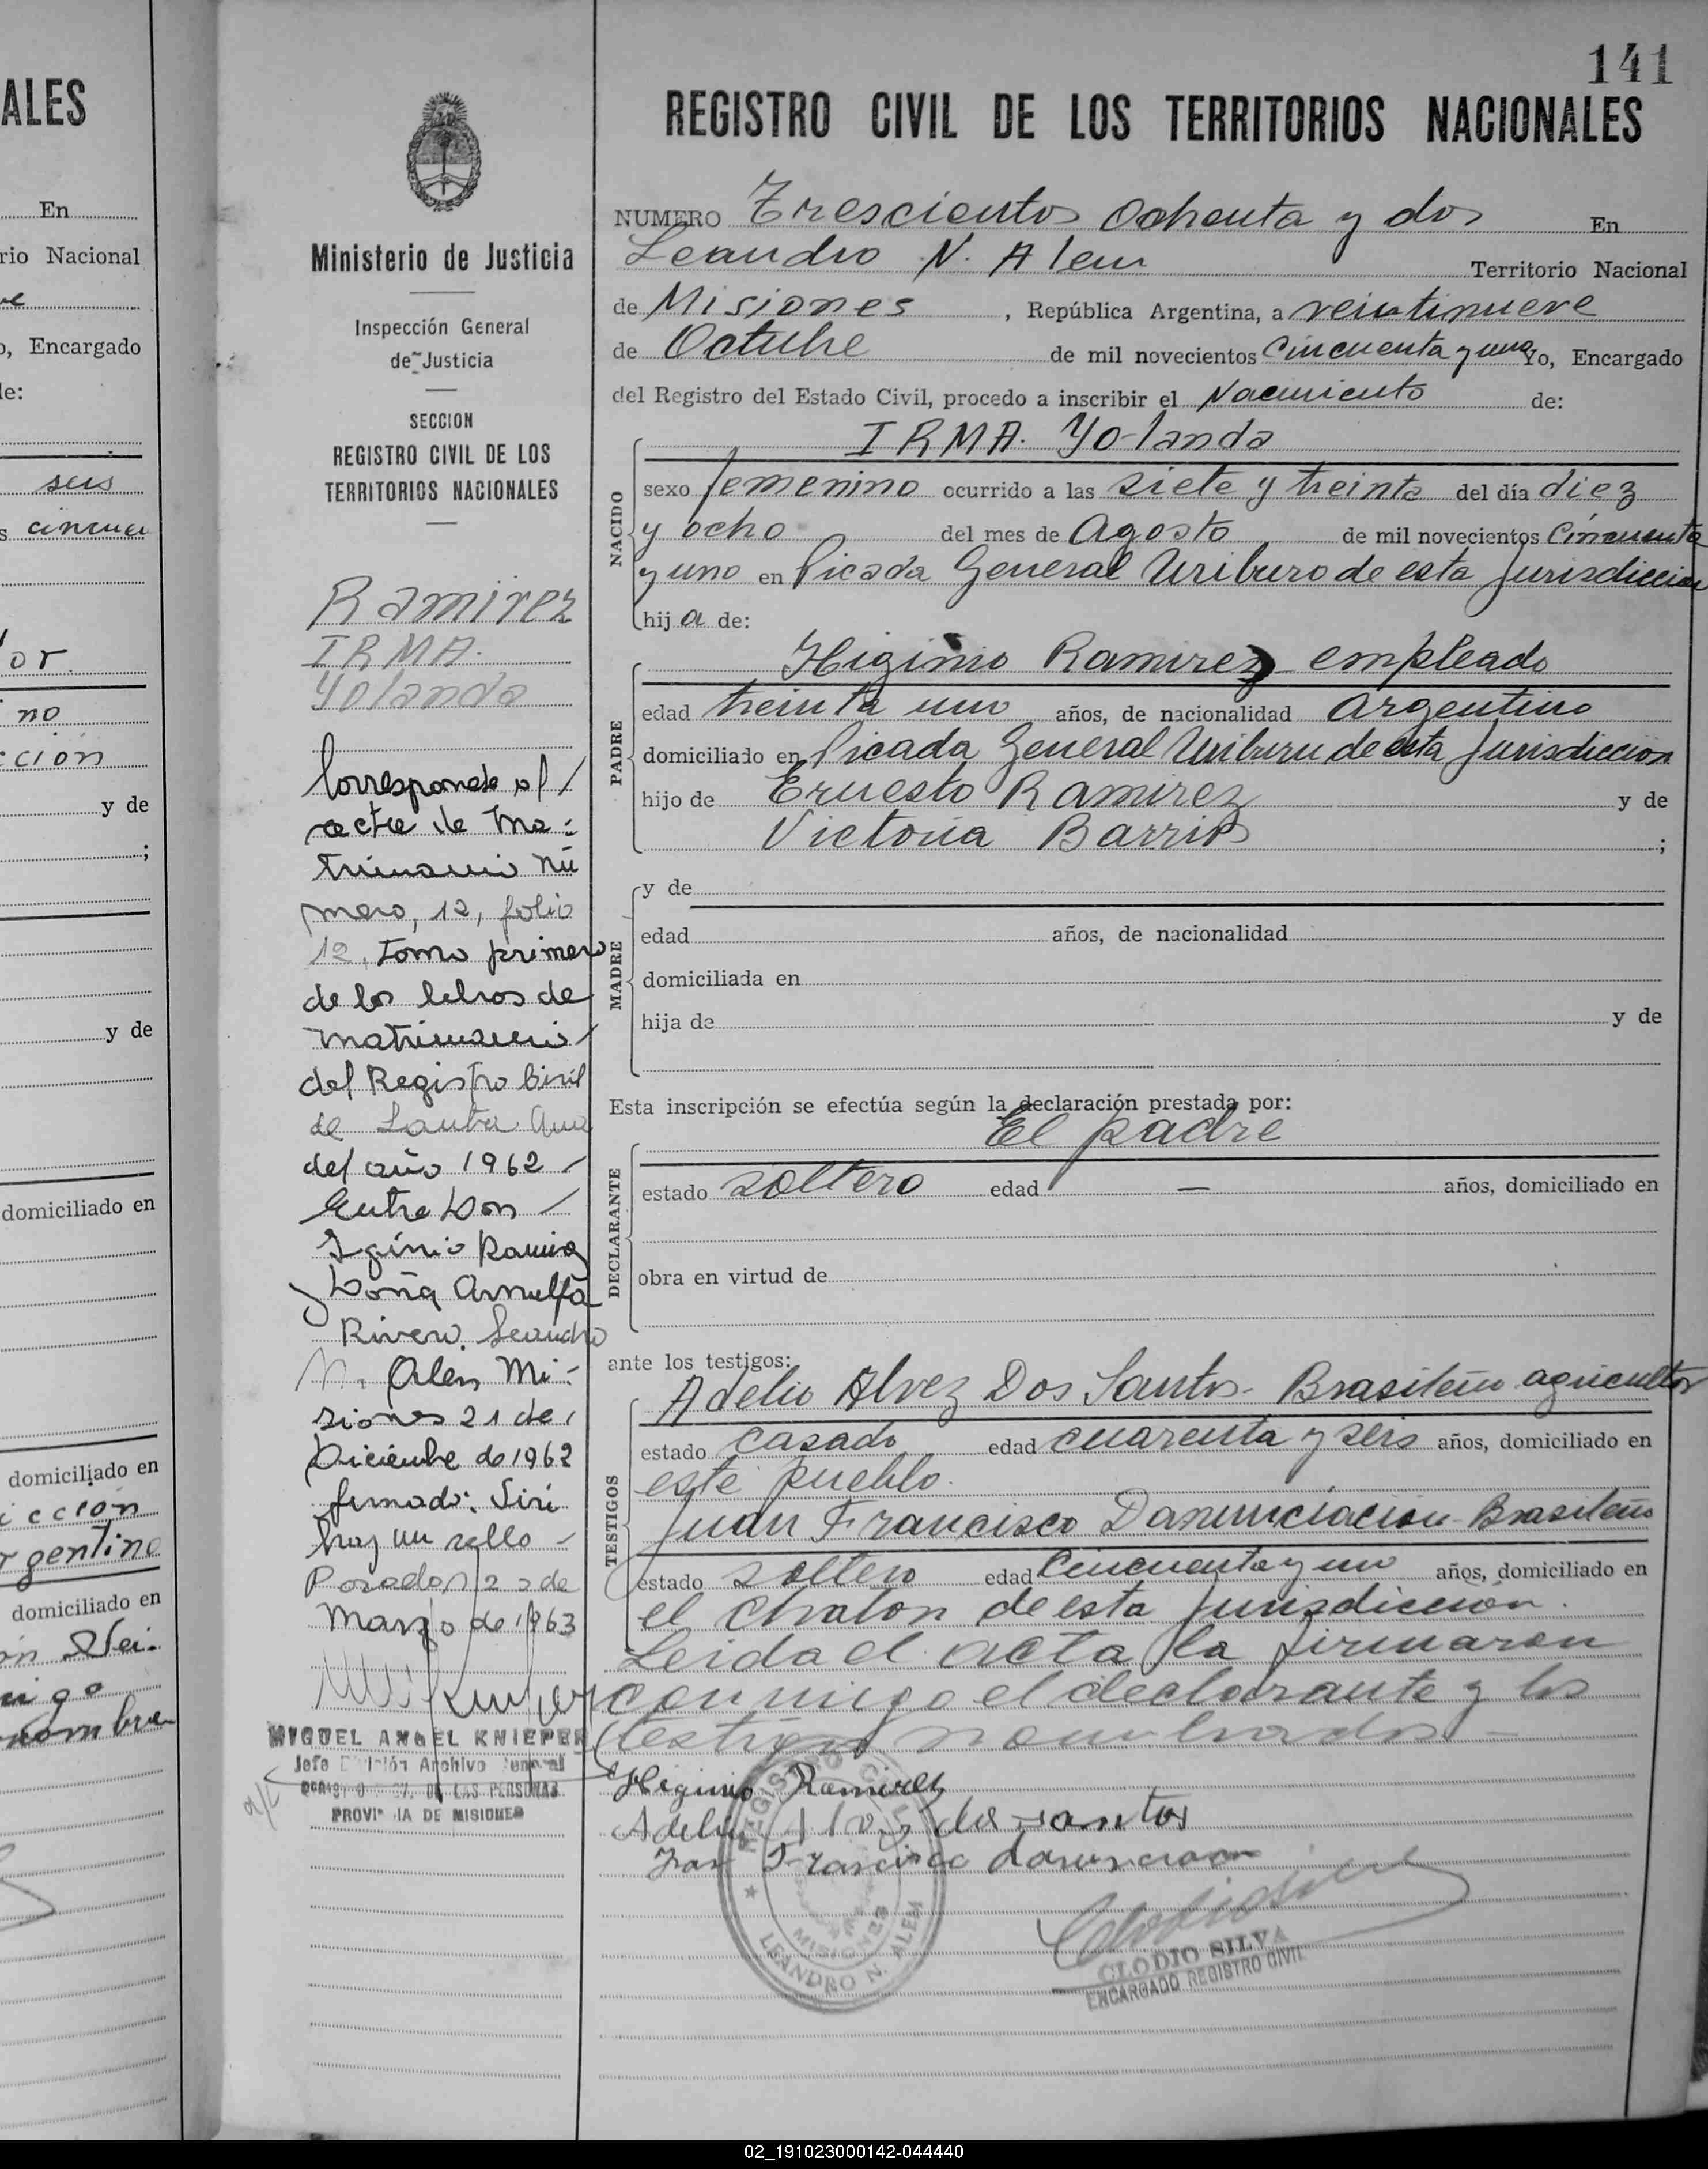 ALES
En
rio Nacional
o, Encargado
de:
seis
s cincue
or
no
ccion
y de
;
y de
domiciliado en
domiciliado en
iccion
rgentino
domiciliado en
nombra
141
REGISTRO CIVIL DE LOS TERRITORIOS NACIONALES
Ministerio de Justicia
Inspección General
de Justicia
SECCION
REGISTRO CIVIL DE LOS
TERRITORIOS NACIONALES
Ramirez
IRMA.
Yolanda
Corresponde al /
acta de Ma-
trimonio Nú
mero, 12, folio
12, tomo primero
de los libros de
Matrimonio /
del Registro Civil
de Santa Ana
del año 1962 -
Entre Don /
Iginio Ramirez
y Doña Arnulfa
Rivero. Leandro
N. Alem Mi-
siones 21 de
Diciembre de 1962
firmado: Siri
hay un sello -
Posadas 22 de
Marzo de 1963
MIGUEL ANGEL KNIEPER
Jefe División Archivo General
DE LAS PERSONAS
PROVINCIA DE MISIONES
NUMERO Trescientos Ochenta y dos En
Leandro N. Alem Territorio Nacional
de Misiones, República Argentina, a veintinueve
de Octubre de mil novecientos Cincuenta y uno Yo, Encargado
del Registro del Estado Civil, procedo a inscribir el Nacimiento de:
NACIDO
IRMA. Yolanda
sexo femenino ocurrido a las siete y treinta del día diez
y ocho del mes de Agosto de mil novecientos Cincuenta
y uno en Picada General Uriburo de esta Jurisdiccion
hija de:
PADRE
Higinio Ramirez empleado
edad treinta uno años, de nacionalidad Argentino
domiciliado en Picada General Uriburu de esta Jurisdiccion
hijo de Ernesto Ramirez y de
Victoria Barrios ;
MADRE
y de
edad años, de nacionalidad
domiciliada en
hija de y de
Esta inscripción se efectúa según la declaración prestada por:
DECLARANTE
El padre
estado soltero edad — años, domiciliado en
obra en virtud de
ante los testigos:
TESTIGOS
Adelio Alvez Dos Santos - Brasileño agricultor
estado Casado edad cuarenta y seis años, domiciliado en
este pueblo.
Juan Francisco Danunciacion - Brasileño
estado soltero edad Cincuenta y un años, domiciliado en
el Chaton de esta Jurisdiccion.
Leida el acta la firmaron
conmigo el declarante y los
testigos nombrados -
Higinio Ramirez
Adelio Alvez dos santos
Juan Francisco danunciacion
REGISTRO CIVIL
MISIONES
LEANDRO N. ALEM
CLODIO SILVA
ENCARGADO REGISTRO CIVIL
02_191023000142-044440